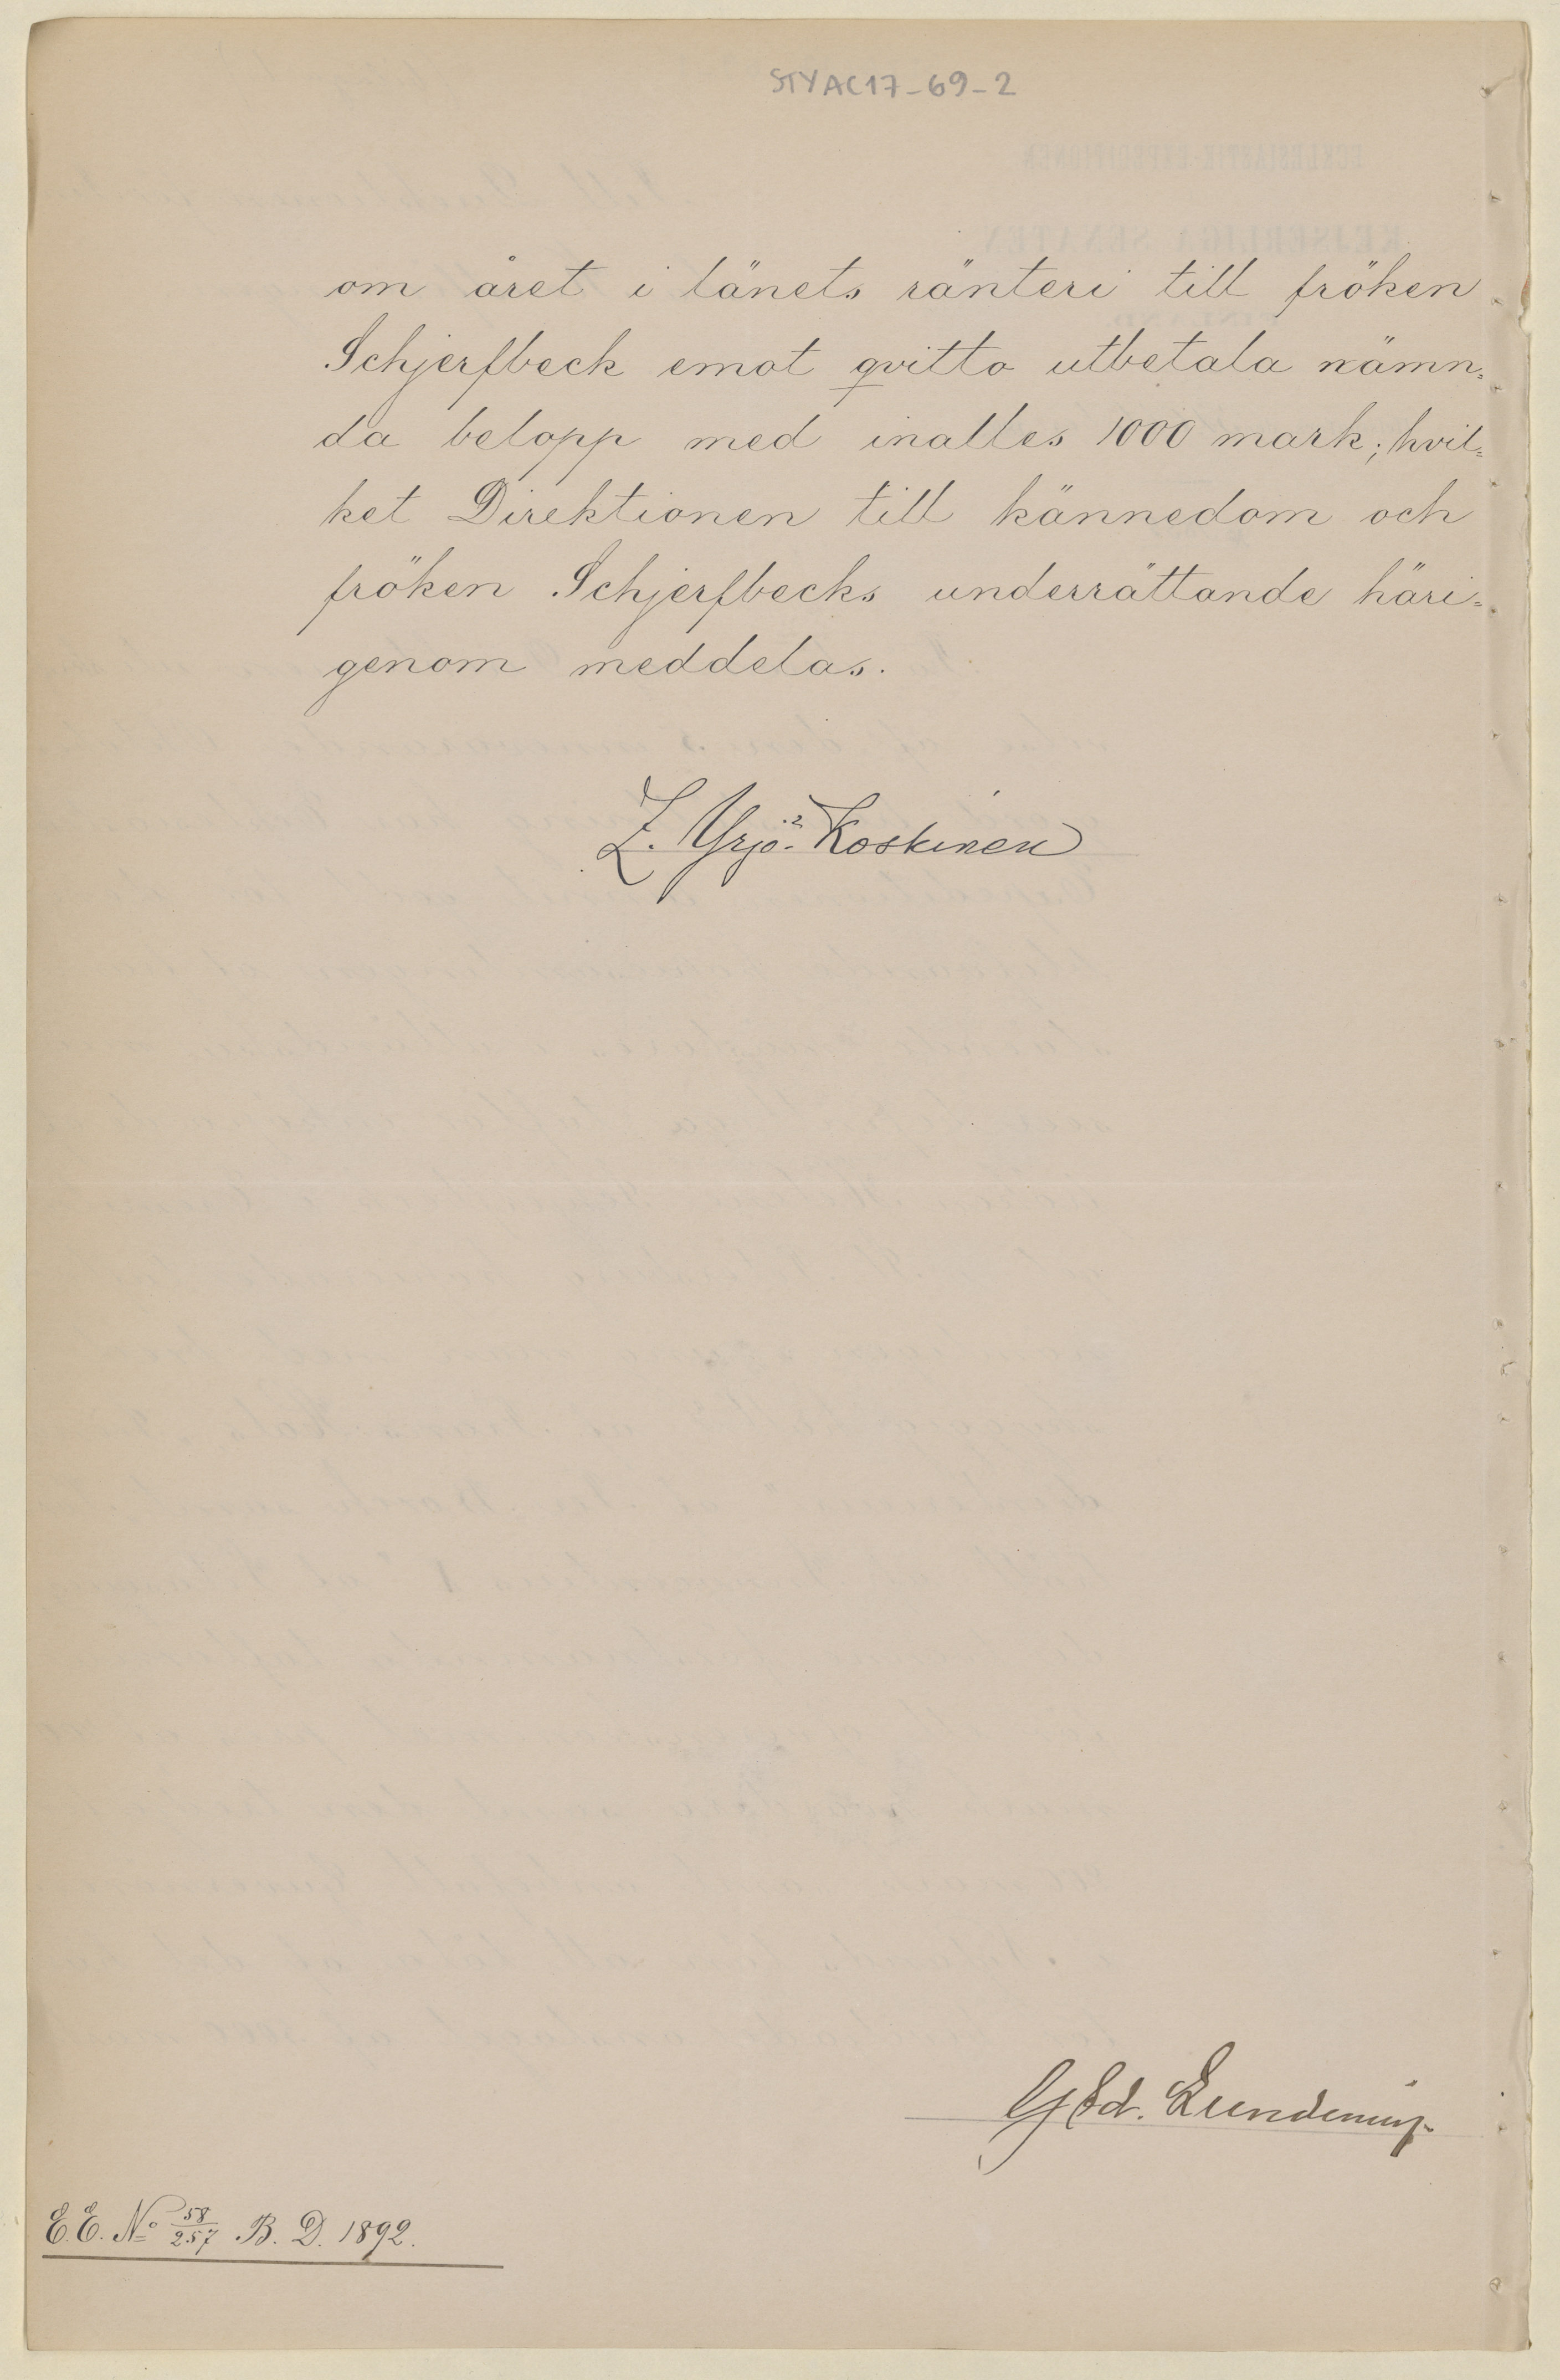 STYAC17-69-2
om året i länets ränteri till fröken
Schjerfbeck emot qvitto utbetala nämn=
da belopp med inalles 1000 mark; hvil=
ket Direktionen till kännedom och
fröken Schjerfbecks underrättande häri=
genom meddelas.
Z. Yrjö-Koskinen
G Ed.
E.E. No 58/257 B. D. 1892.